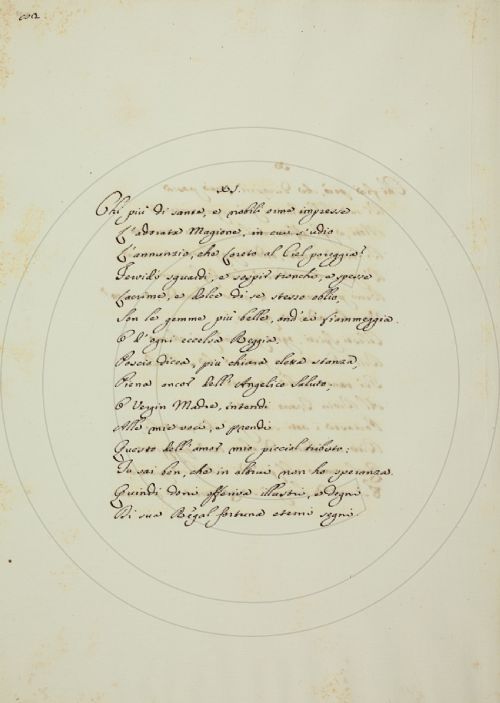 XI.
Chi più di sante, e nobili orme impresse
L'adorata Magione, in cui s'udio
L'annunzio, che Loreto al Ciel pareggia?
Fervidi sguardi, e sospir tronchi, e spesse
Lacrime, e dolce di se stesso oblio,
Son le gemme più belle, ond'ei fiammeggia.
E d'ogni eccelsa Reggia,
Poscia dicea, più chiara eletta stanza,
Piena ancor dell'Angelico Saluto;
E Vergin Madre, intendi
Alle mie voci, e prendi
Questo dell'amor mio picciol tributo:
Tu sai ben, che in altrui non ho speranza.
Quindi doni offeriva illustri, e degni
Di sua Regal fortuna eterni segni.